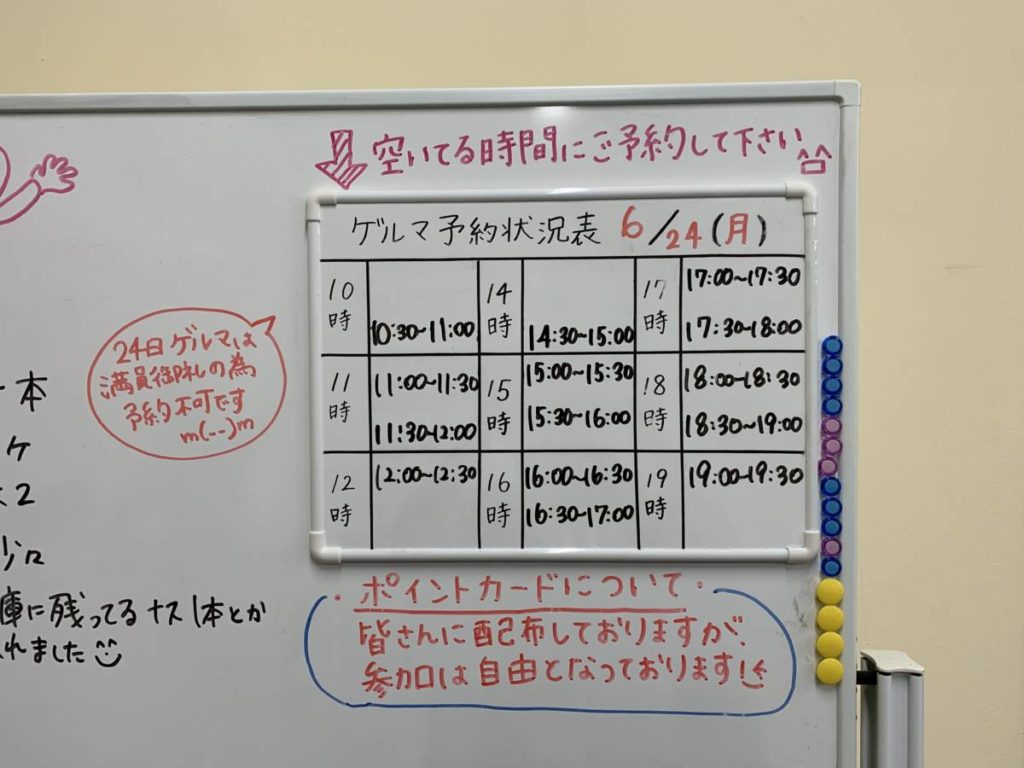 空いてる時間にご予約して下さい
ゲルマ予約状況表 6/24(月)
10時
10:30~11:00
14時
14:30~15:00
17時
17:00~17:30
17:30~18:00
11時
11:00~11:30
11:30~12:00
15時
15:00~15:30
15:30~16:00
18時
18:00~18:30
18:30~19:00
12時
12:00~12:30
16時
16:00~16:30
16:30~17:00
19時
19:00~19:30
24日ゲルマは
満員御礼の為
予約不可です
m(--)m
本
ケ
2
少々
庫に残ってるナス1本とか
れました
・ポイントカードについて・
皆さんに配布しておりますが、
参加は自由となっております!